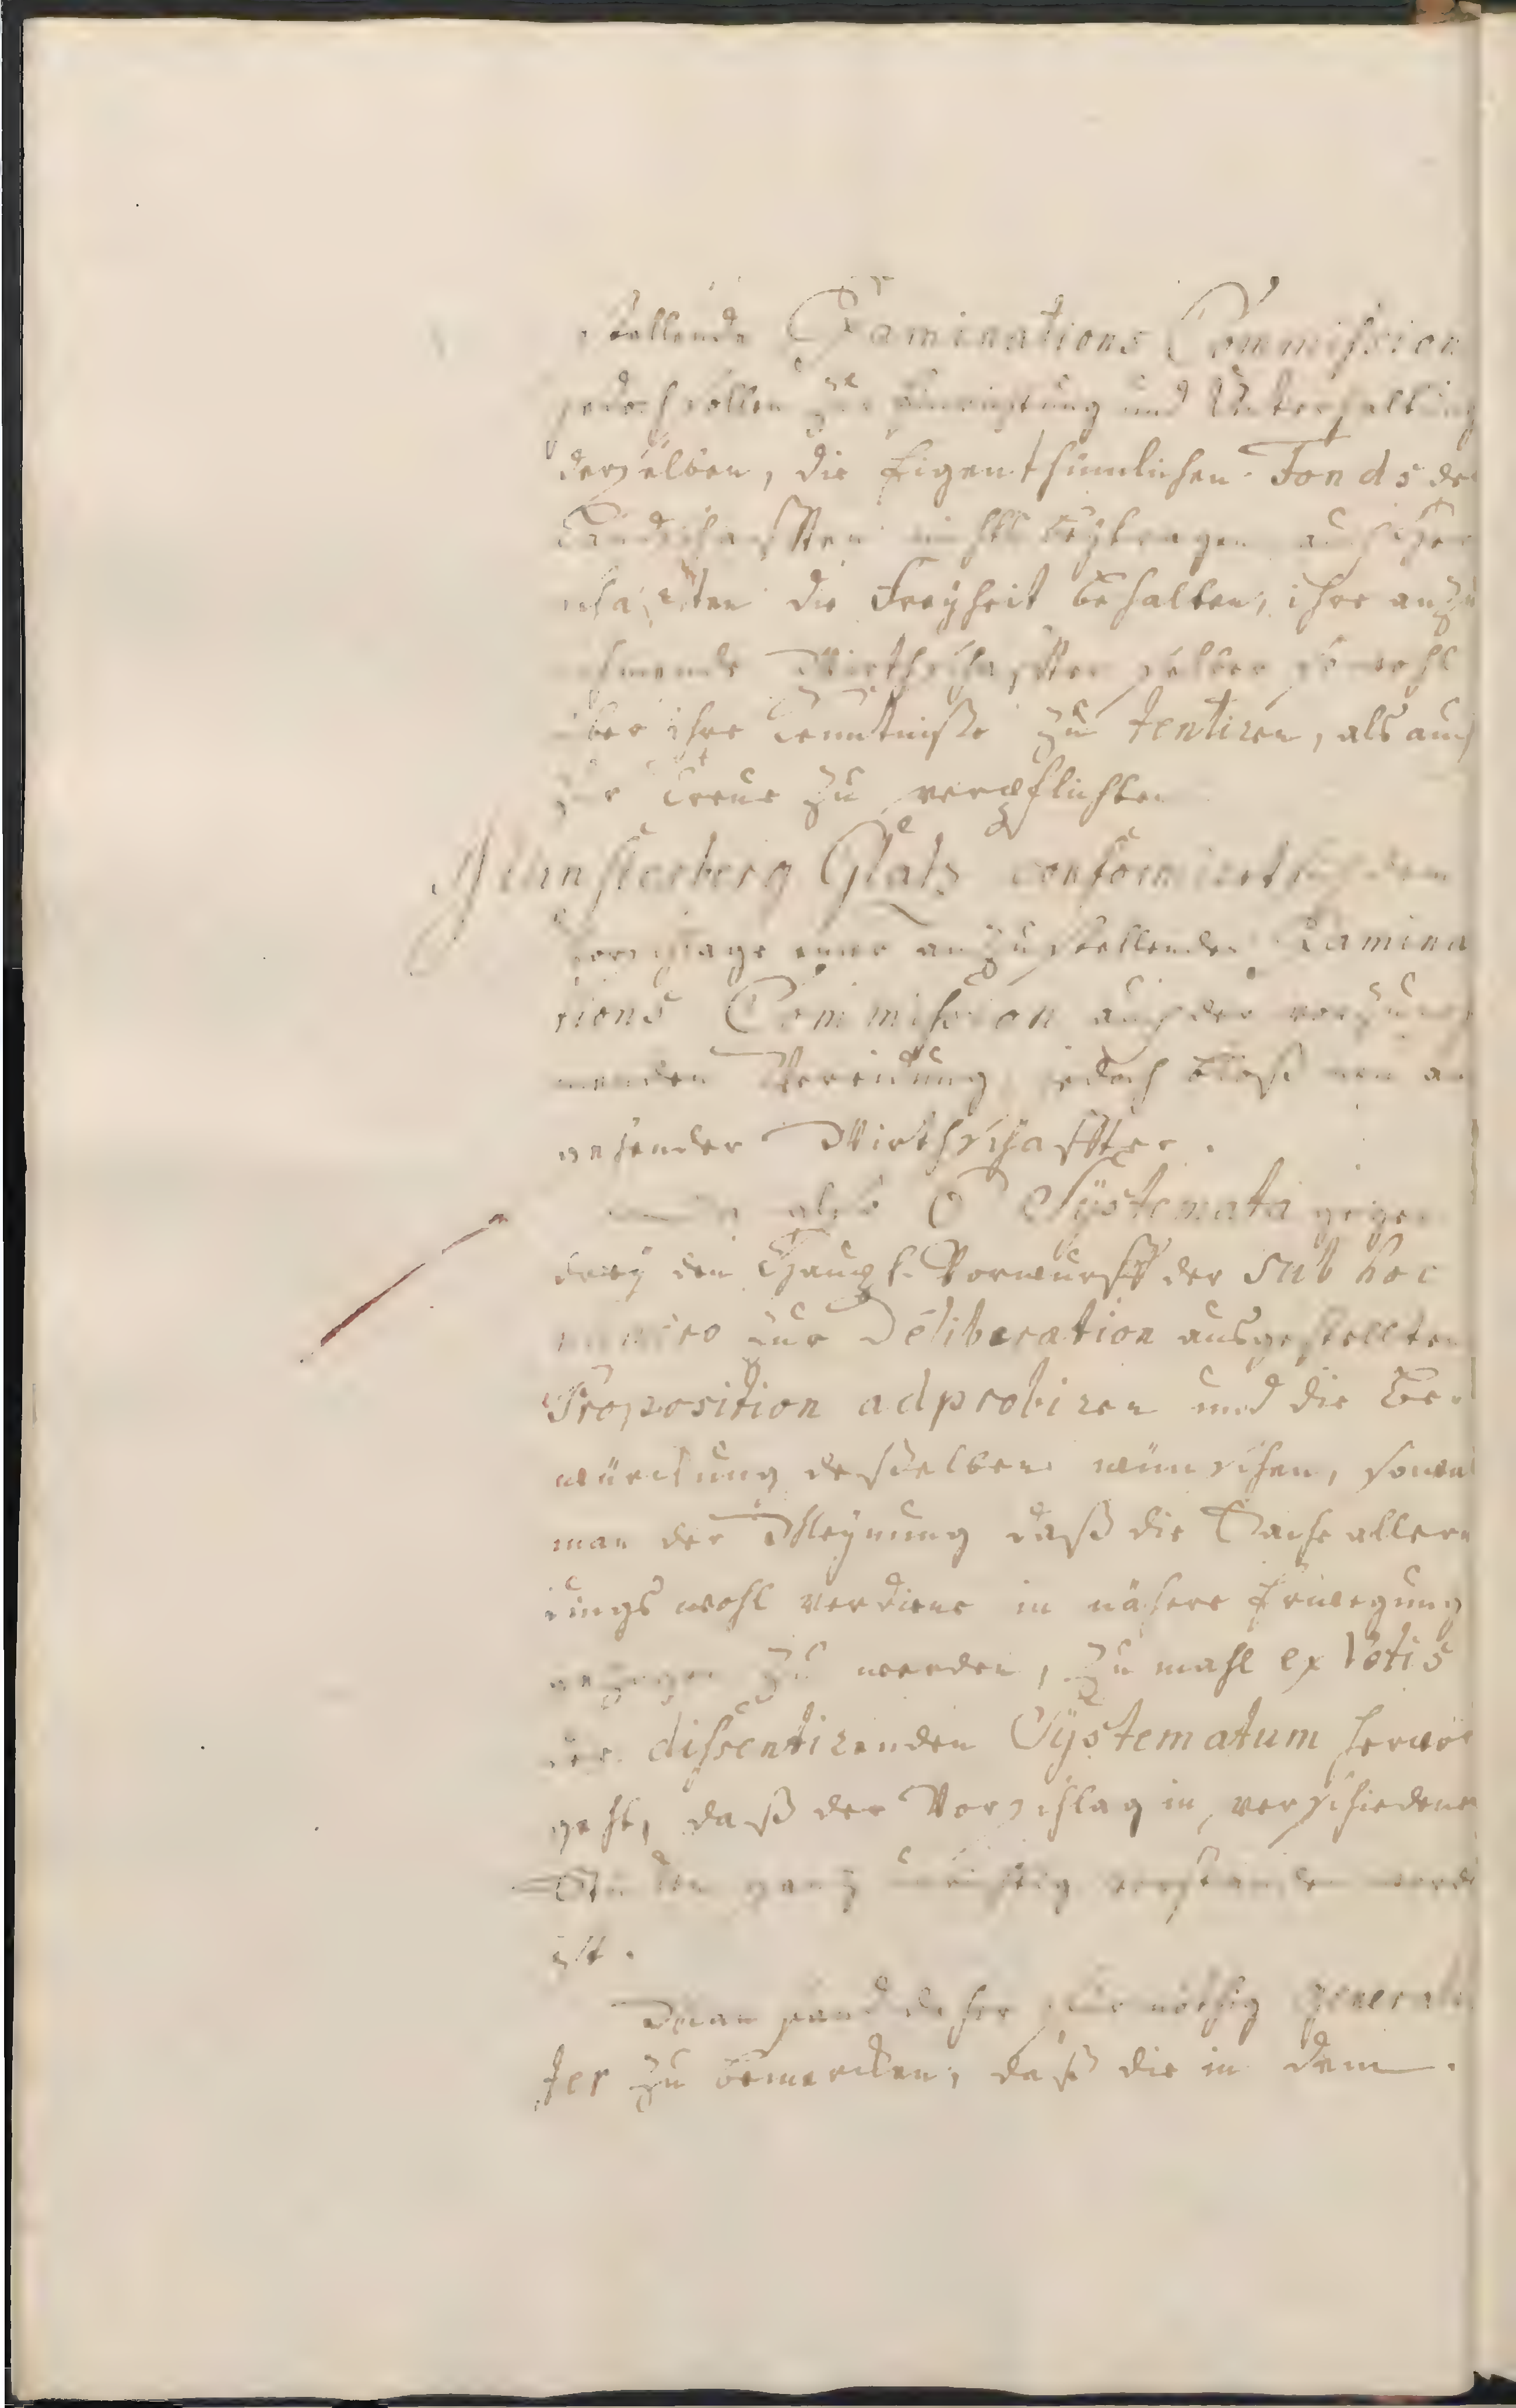 stellende Examinations Commission
jedoch sollen zur Einrichtung und Unterhaltung
derselben, die Eigenthümlichen Fonds der
Landschafften nichts beytragen, auch
die Freyheit behalten, ihre anzu
nehmende Wirthschaffter selber sowohl
über ihre Kenntniße zu tentiren, als auch
zur Treue zu verpflichten
Münsterberg Glatz conformiret sich dem
Vorschlage einer anzustellenden Examina
tions Commission auch der vorzuneh
menden Vereidung, jedoch bloß neu an
gehender Wirthschaffter.
6 Systemata gegen
drey den Haupt-Vorwurff der sub hoc
numero zur Deliberation ausgestellten
Proposition adprobiren und die Be
würckung desselben wünschen, so war
man der Meynung daß die Sache allerd
ings wohl verdiene in nähere Erwegung
gezogen zu werden, zumahl ex Votis
der dissentirenden Systematum hervor
geht, daß der Vorschlag in verschiedenen
Stücken ganz unrichtig verstanden worden
ist.
Man fand daher für nöthig generali
ter zu bemercken, daß die in dem